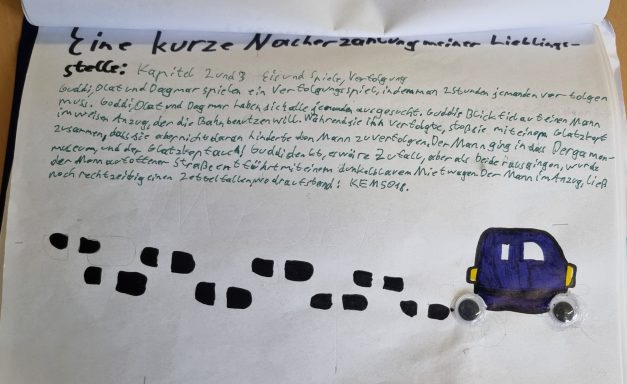 Eine kurze Nacherzählung meiner Lieblings-
stelle: Kapitel 2 und 3 Eis und Spiele, Verfolgung
Guddi, Olat und Dagmar spielen ein Verfolgungsspiel, indem man 2 Stunden jemanden verfolgen
muss. Guddi, Olat und Dagmar haben sich alle jemanden ausgesucht. Guddis Blick fiel auf einen Mann
im weisen Anzug, der die Bahn benutzen will. Während sie ihn verfolgte, stoß sie mit einem Glatzkopf
zusammen, dass sie aber nicht daran hinderte den Mann zu verfolgen. Der Mann ging in das Pergamon-
museum, und der Glatzkopf auch! Guddi denkt, er wäre Zufall, aber als beide rausgingen, wurde
der Mann auf offener Straße entführt mit einem dunkelblauen Mietwagen. Der Mann im Anzug, ließ
noch rechtzeitig einen Zettel fallen, wo drauf stand: KEMSO18.